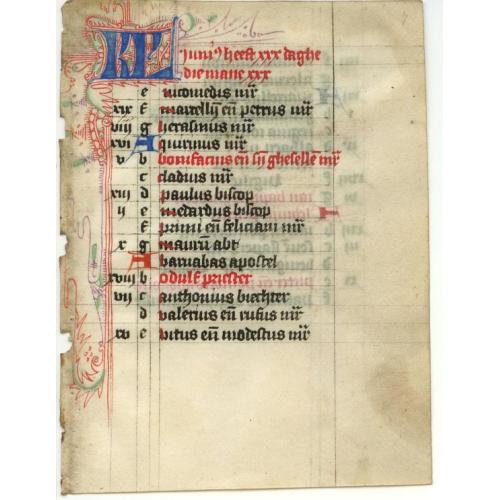 KL Junius heeft xxx daghe
die mane xxx
e nicomedis mr
xix f marcellij en petrus mr
viij g herasmus mr
xvi A quirinus mr
v b bonifacius en sij ghesellen mr
c cladius mr
xiij d paulus biscop
ij e medardus biscop
f primi en feliciani mr
x g mauri abt
A barnabas apostel
xviij b odulf priester
vij c anthonius biechter
d valerius en rufus mr
xv e vitus en modestus mr